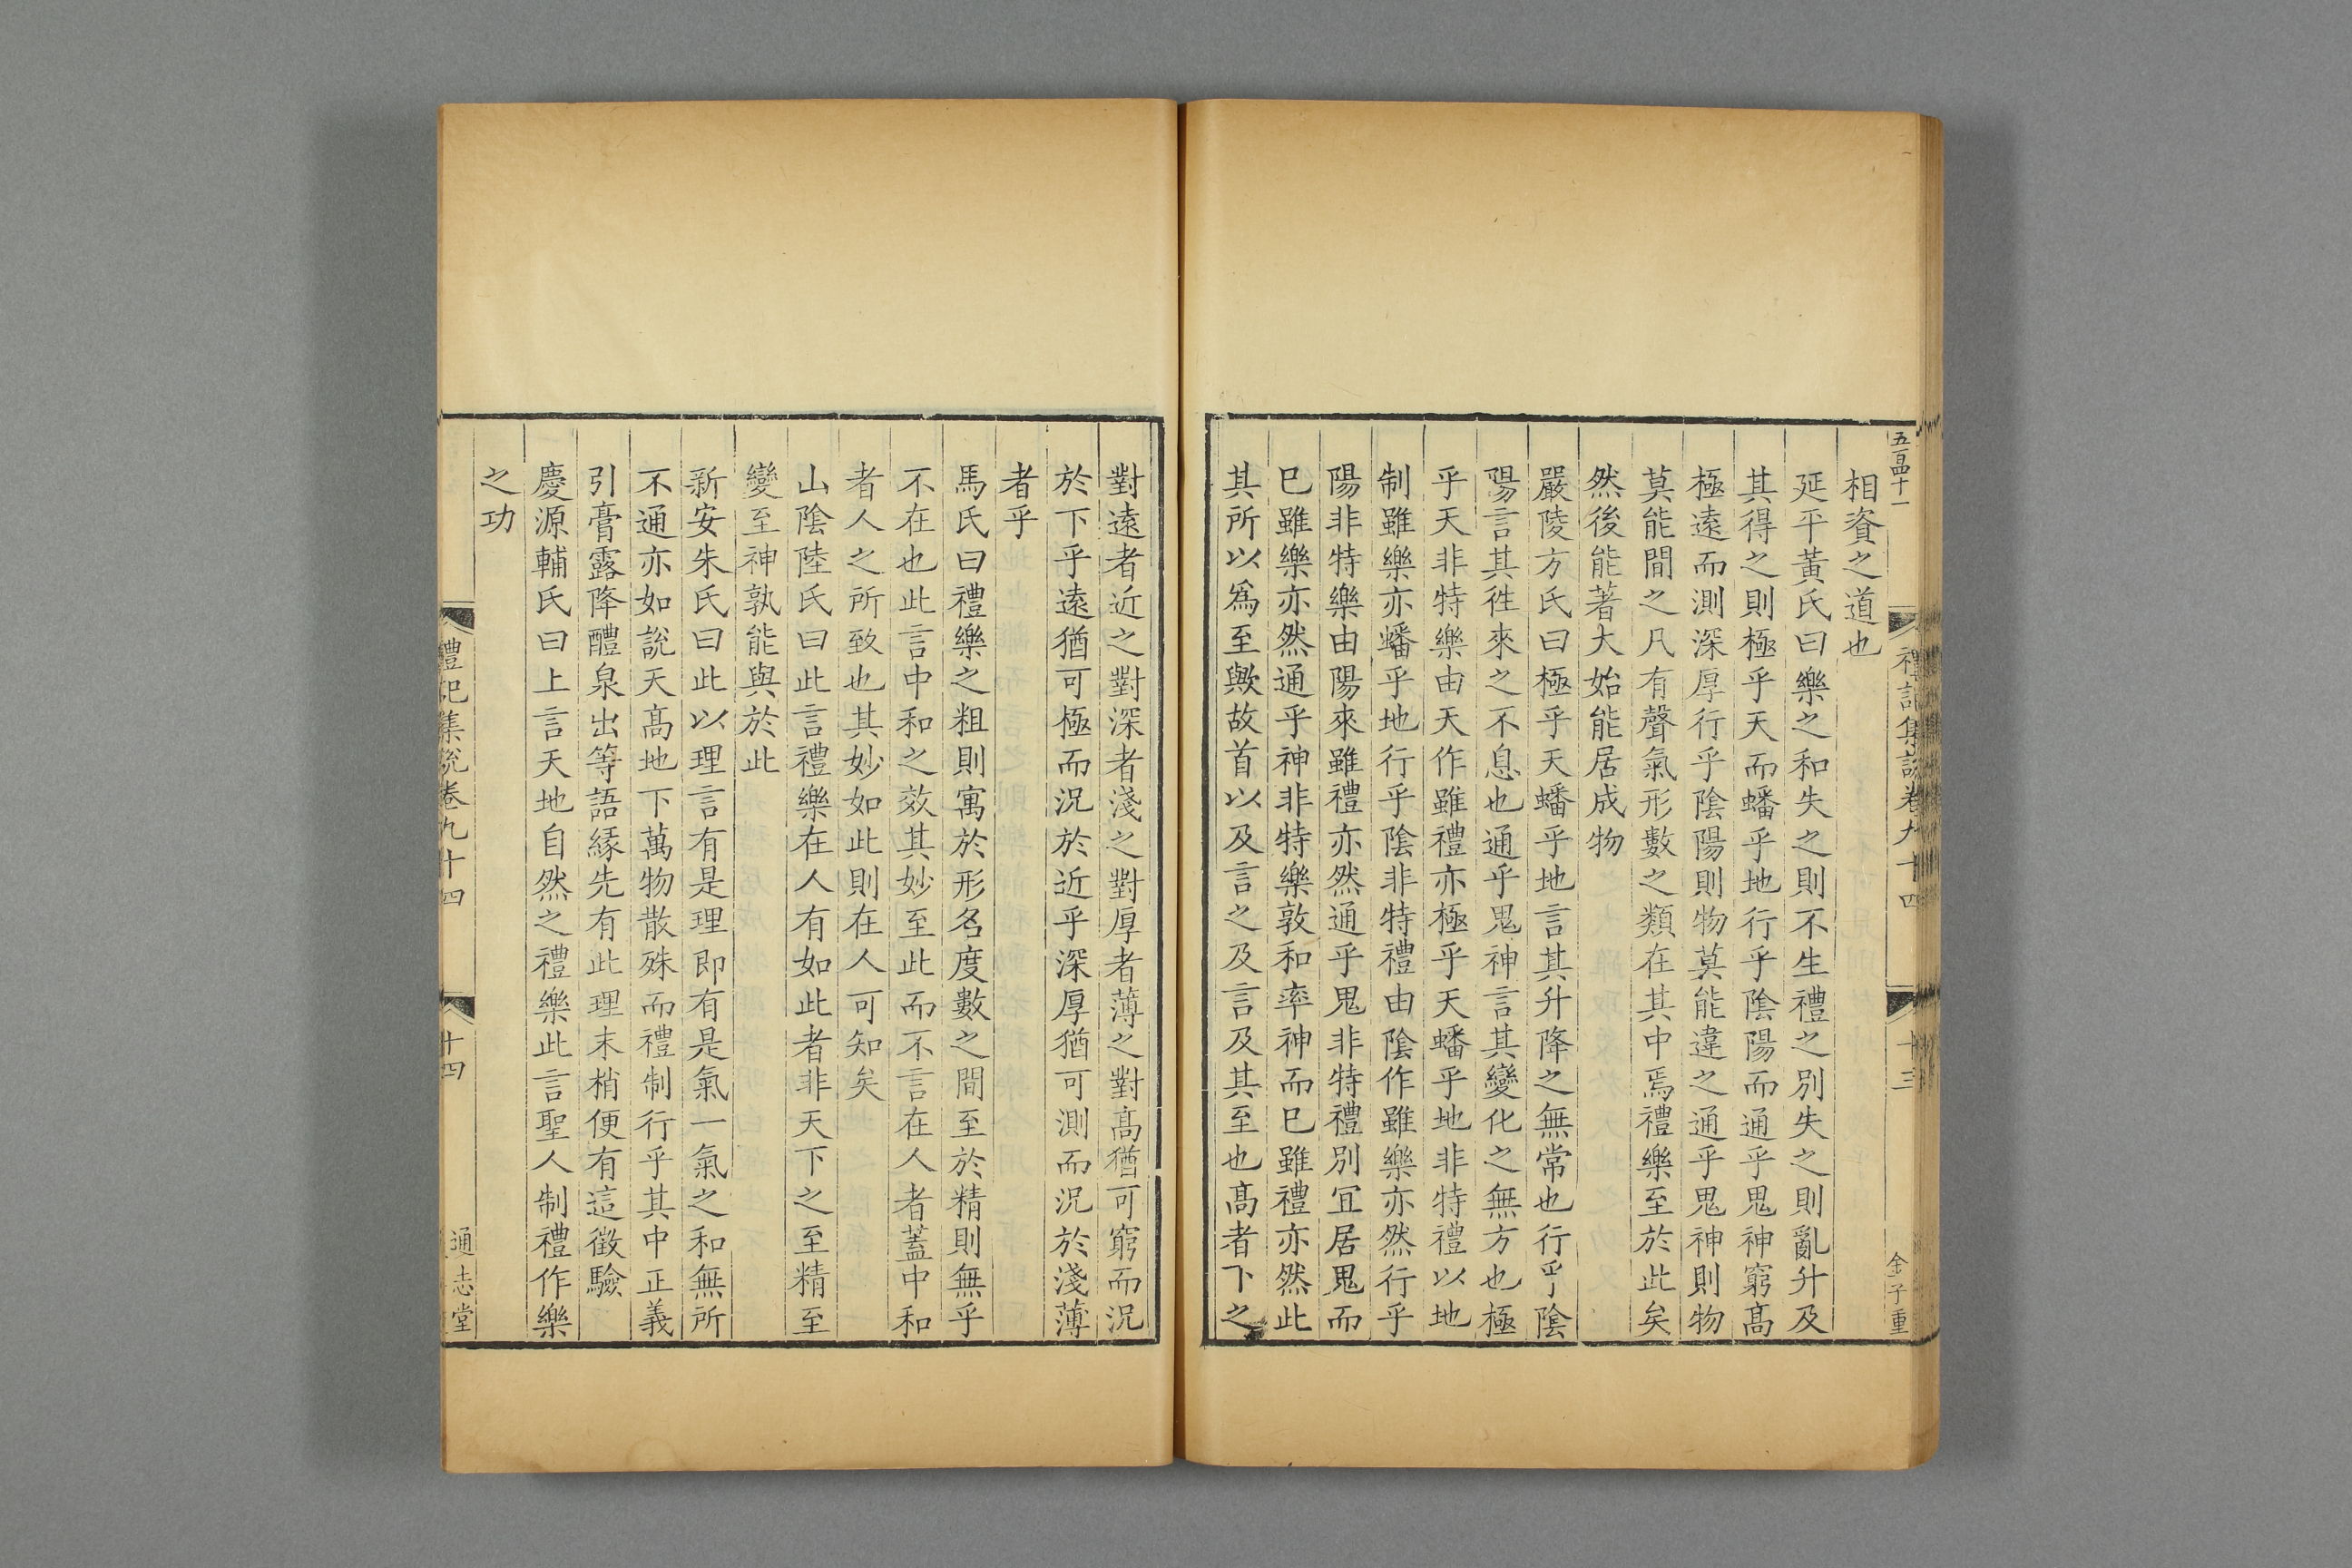 五百四十一
禮記集說卷九十四
十三
金子重
相資之道也
延平黃氏曰樂之和失之則不生禮之別失之則亂升及
其得之則極乎天而蟠乎地行乎陰陽而通乎鬼神窮髙
極遠而測深厚行乎陰陽則物莫能違之通乎鬼神則物
莫能間之凡有聲氣形數之類在其中焉禮樂至於此矣
然後能著大始能居成物
嚴陵方氏曰極乎天蟠乎地言其升降之無常也行乎陰
陽言其徃來之不息也通乎鬼神言其變化之無方也極
乎天非特樂由天作雖禮亦極乎天蟠乎地非特禮以地
制雖樂亦蟠乎地行乎陰非特禮由陰作雖樂亦然行乎
陽非特樂由陽來雖禮亦然通乎鬼非特禮別宜居鬼而
已雖樂亦然通乎神非特樂敦和率神而已雖禮亦然此
其所以爲至歟故首以及言之及言及其至也髙者下之
對遠者近之對深者淺之對厚者薄之對髙猶可窮而況
於下乎遠猶可極而況於近乎深厚猶可測而況於淺薄
者乎
馬氏曰禮樂之粗則寓於形名度數之間至於精則無乎
不在也此言中和之效其妙至此而不言在人者蓋中和
者人之所致也其妙如此則在人可知矣
山陰陸氏曰此言禮樂在人有如此者非天下之至精至
變至神孰能與於此
新安朱氏曰此以理言有是理即有是氣一氣之和無所
不通亦如說天髙地下萬物散殊而禮制行乎其中正義
引膏露降醴泉出等語緣先有此理末梢便有這徵驗
慶源輔氏曰上言天地自然之禮樂此言聖人制禮作樂
之功
禮記集說卷九十四
十四
通志堂